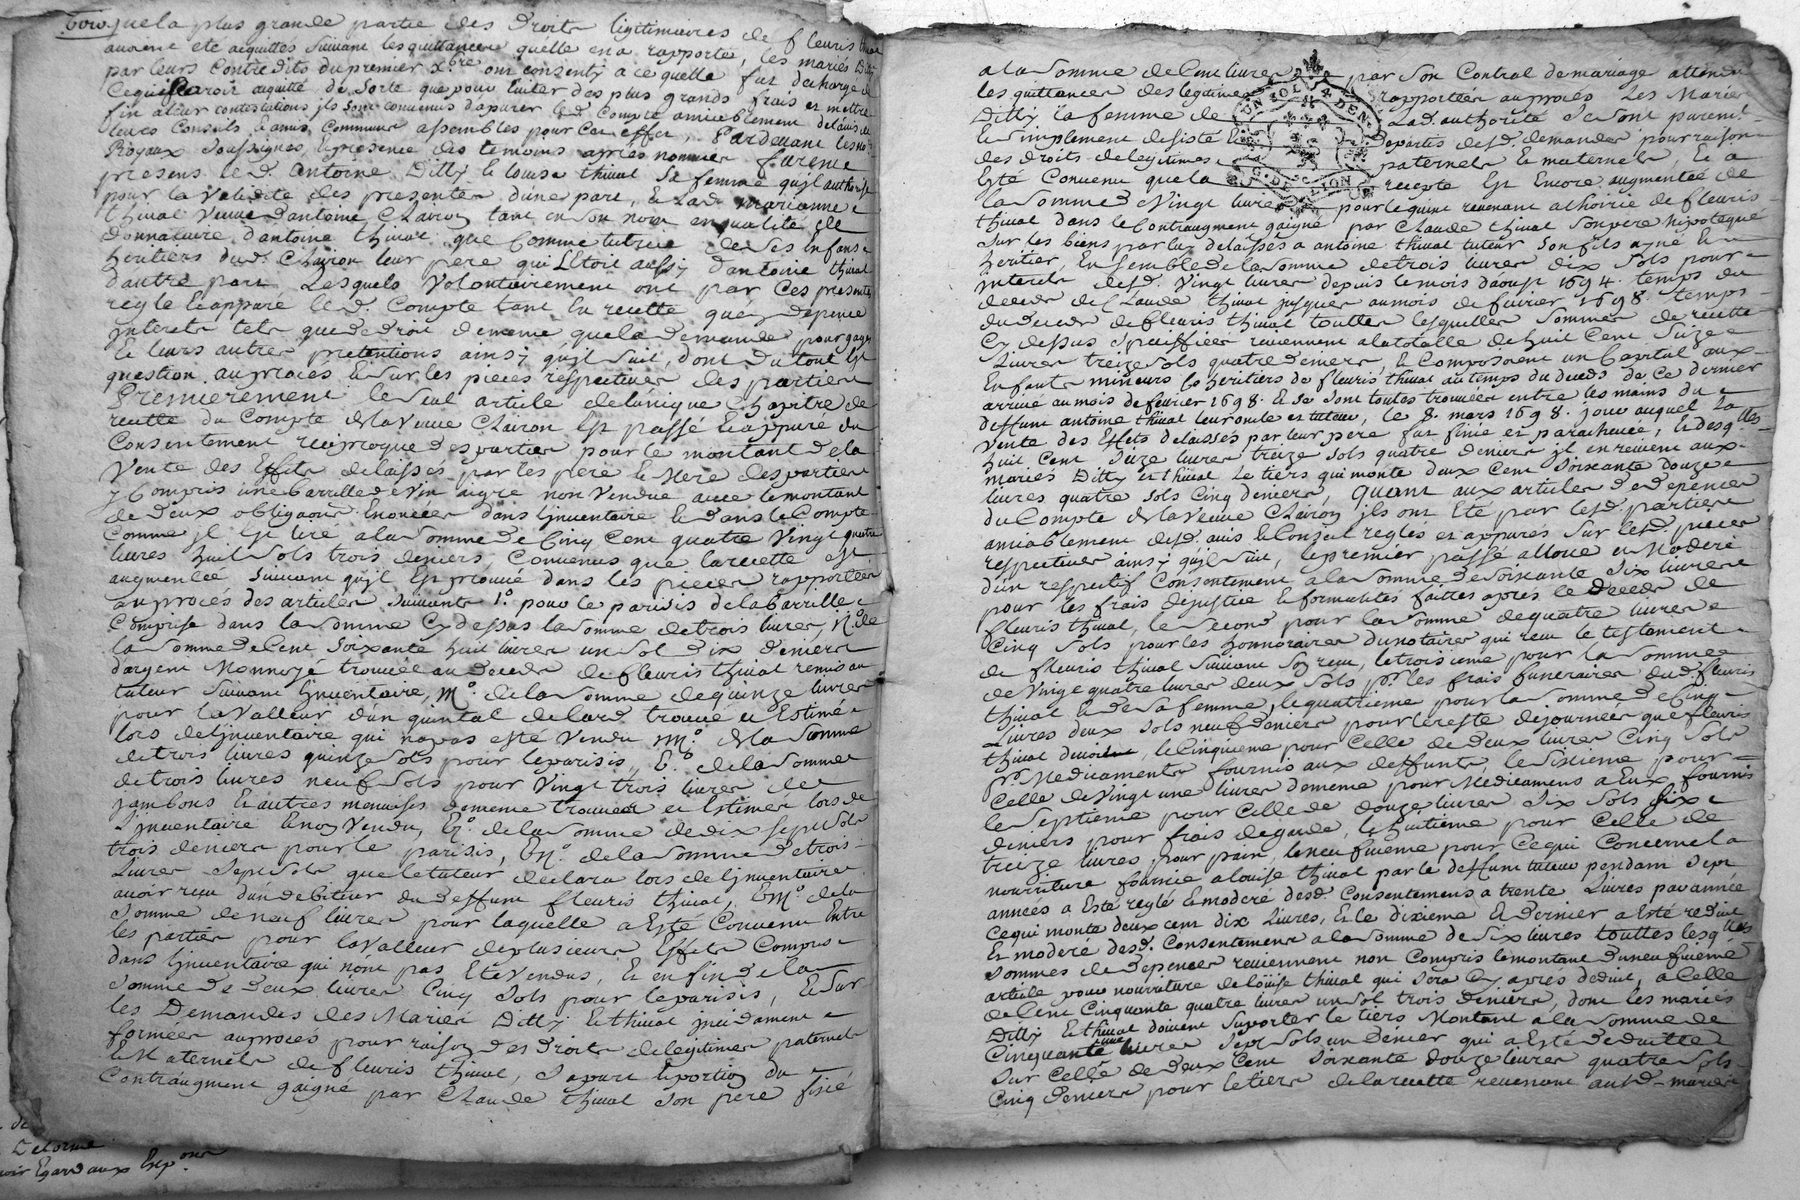 que la plus grande partie des Droits legitimaires de fleuris thiual
auoient eté acquittés suiuant les quittances quelle en a rapporté, les mariés Ditty
par leurs Contredits du premier xbre ont consenty a ce quelle fut dechargé
acquitté de sorte que pour euiter des plus grands frais et mettre
fin a leur contestations jls sont conuenus dapurer led. Compte amiablement de lauis de
leurs Conseils & amis Communs assemblés pour Cet effet, Pardeuant les no.res
Royaux soussignés & presence des temoins apres nommés furent
presens led. antoine Ditty & louise thiual sa femme qujl authorise
pour la Validité des presentes d'une part, & Lad. Marianne
thiual Veuue d'antoine Clairon tant en son nom en qualité de
donnataire d'antoine thiual que Comme tutrice de ses Enfans
heritiers dud. Clairon leur pere qui L'Etoit aussy d'antoine thiual
d'autre part Lesquels Volontairement ont par Ces presentes
reglé & appuré le d. Compte tant En recette que depence
jnterets tels que de droit de meme que la demande pour gages
& leurs autres pretentions ainsy qujl suit, dont du tout Est
question au procés & sur les pieces respectiues des parties
Premierement le seul article de lunique Chapitre de
recette du Compte de la Veuue Clairon Est passé & appuré du
Consentement reciproque des parties pour le montant de la
Vente des Effets delaissés par les pere & Mere des parties
y Compris une barrille de Vin aigre non Vendue auec le montant
de deux obligaons Enoncées dans ljnuentaire & dans le Compte
Comme jl Est tiré a la somme de Cinq Cent quatre Vingt quatre
liures huit sols trois deniers, Conuenus que la recette est
augmentée suiuant qujl Est prouué dans les pieces rapportées
au procés des articles suiuants 1.o pour le parisis de la barrille
Comprise dans la somme Cy dessus la somme de trois liures, 11.o de
la somme de Cent soixante huit liures un sol dix deniers
d'argent Monnoyé trouuée au deceds de fleuris thiual remis au
tuteur suiuant ljnuentaire, 111.o de la somme de quinze liures
pour la Valleur d'un quintal de lard trouué & Estimé
lors de ljnuentaire qui na pas esté Vendu 1111.o de la somme
de trois liures quinze sols pour le parisis, 5.o de la somme
de trois liures neuf sols pour Vingt trois liures de
jambons & autres menuises de meme trouuées et Estimées lors de
l'jnuentaire & non Vendu, 6.o de la somme de dix sept sols
trois deniers pour le parisis, 7.o de la somme de trois
Liures sept sols que le tuteur declara lors de ljnuentaire
auoir reçu d'un debiteur du deffunt fleuris thiual, 8.o de la
somme de neuf liures pour laquelle a Esté Conuenu Entre
les parties pour la Valleur de plusieurs Effets Compris
dans ljnuentaire qui n'ont pas Eté Vendus, & en fin de la
somme de deux liures Cinq sols pour le parisis, & sur
les Demandes des Mariés Ditty & thiual jncidament
formées au procés pour raison des Droits de legitimes paternels
& Maternels de fleuris thiual, sa part & portion du
Contraugment gaigné par Claude thiual son pere fixé
Delorme
Egard aux
a la somme de Cent liures par son Contrat de mariage attendu
les quittances des legitimes rapportées au procés les Mariés
Ditty la femme de Lad. authorité se sont purem.t
& simplement desisté & departis desd. demandes pour raison
des droits de legitimes paternels & maternels, & a
Esté Conuenu que la recepte Est Encore augmentée de
la somme de Vingt liures pour le quint reuenant a lhoirie de fleuris
thiual dans le Contraugment gaigné par Claude thiual son pere hipotequé
sur les biens par luy delaissés a antoine thiual tuteur son fils ayné &
heritier, Ensemble de la somme de trois liures dix sols pour
jnterets desd. Vingt liures depuis le mois d'aoust 1694. temps du
deceds de Claude thiual jusques au mois de feurier 1698. temps
du deceds de fleuris thiual touttes lesquelles sommes de recette
Cy dessus speciffiées reuiennent a la totalle de huit Cent seize
Liures treize sols quatre deniers, & Composoient un Capital aux
Enfants mineurs & heritiers de fleuris thiual au temps du deceds de Ce dernier
arriué au mois de feurier 1698. & se sont touttes trouuées entre les mains du
deffunt antoine thiual leur oncle et tuteur, le 8. mars 1698. jour auquel la
Vente des Effets delaissés par leur pere fut finie et paracheuée, & desq.lles
huit Cent seize liures treize sols quatre deniers jl en reuient aux
mariés Ditty et thiual le tiers qui monte deux Cent soixante douze
liures quatre sols Cinq deniers, Quant aux articles de depences
du Compte de la Veuue Clairon jls ont Eté par lesd. parties
amiablement desd. auis & Conseil reglés et appurés sur lesd. pieces
respectiues ainsy qujl suit, le premier passé alloué & Moderé
d'un respectif Consentement a la somme de soixante six liures
pour les frais de justice & formalités faittes apres le Deceds de
fleuris thiual, le second pour la somme de quatre liures
Cinq sols pour les honnoraires du notaire qui recu le testament
de fleuris thiual suiuant son reçu, le troisieme pour la somme
de Vingt quatre liures deux sols p.r les frais funeraires dud. fleuris
thiual & de sa femme, le quatrieme pour la somme de Cinq
Liures deux sols neuf deniers pour le reste de journées que fleuris
thiual deuoit, le Cinquieme pour Celle de deux liures Cinq sols
p.r Medicaments fournis aux deffunts le sixieme pour
Celle de Vingt une liures de meme pour Medicamens a Eux fournis
le septieme pour Celle de douze liures six sols six
deniers pour frais de garde, le huitieme pour Celle de
treize liures pour pain, le neufuieme pour Ce qui Concerne la
nourriture fournie a louise thiual par le deffunt tuteur pendant sept
années a Esté reglé & moderé desd. Consentemens a trente Liures par année
Ce qui monte deux cent dix Liures, & le dixieme & dernier a Esté reduit
Et moderé desd. Consentemens a la somme de six liures touttes lesq.lles
sommes de depences reuiennent non Compris le montant du neufuieme
article pour nourriture de louise thiual qui sera Cy aprés deduit, a Celle
de Cent Cinquante quatre liures un sol trois deniers, dont les mariés
Ditty & thiual doiuent suporter le tiers Montant a la somme de
Cinquante une liures sept sols un Denier qui a Esté deduitte
sur Celle de deux Cent soixante douze liures quatre sols
Cinq deniers pour le tiers de la recette reuenant aux d. mariés